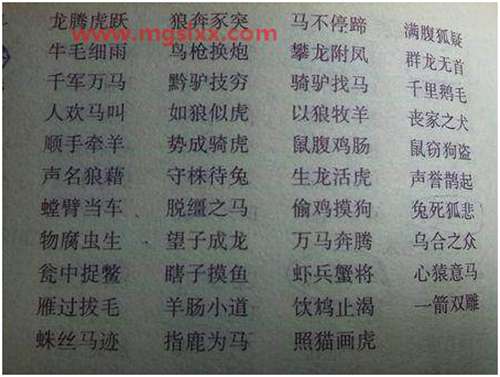 龙腾虎跃 狼奔豕突 马不停蹄 满腹狐疑
www.mgsixx.com
牛毛细雨 鸟枪换炮 攀龙附凤 群龙无首
千军万马 黔驴技穷 骑驴找马 千里鹅毛
人欢马叫 如狼似虎 以狼牧羊 丧家之犬
顺手牵羊 势成骑虎 鼠腹鸡肠 鼠窃狗盗
声名狼藉 守株待兔 生龙活虎 声誉鹊起
螳臂当车 脱缰之马 偷鸡摸狗 兔死狐悲
物腐虫生 望子成龙 万马奔腾 乌合之众
瓮中捉鳖 瞎子摸鱼 虾兵蟹将 心猿意马
雁过拔毛 羊肠小道 饮鸩止渴 一箭双雕
蛛丝马迹 指鹿为马 照猫画虎